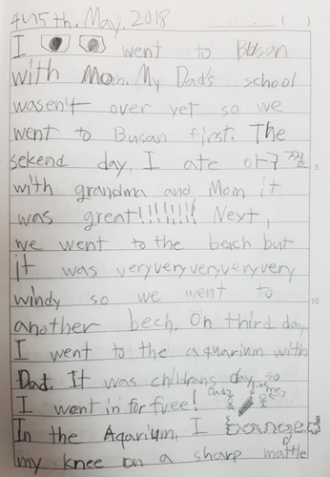 4~15th. May. 2018 ( )
I went to Busan
with Mom. My Dad's school
wasen't over yet so we
went to Busan first. The
sekend day, I ate 아구찜
with grandma and Mom it
was great!!!!!!!! Next,
we went to the beach but
it was veryveryveryveryvery
windy so we went to
another bech. On third day
I went to the aquarium with
Dad. It was childrans day, so
I went in for free!
In the Aqarium, I
my knee on a sharp mattle